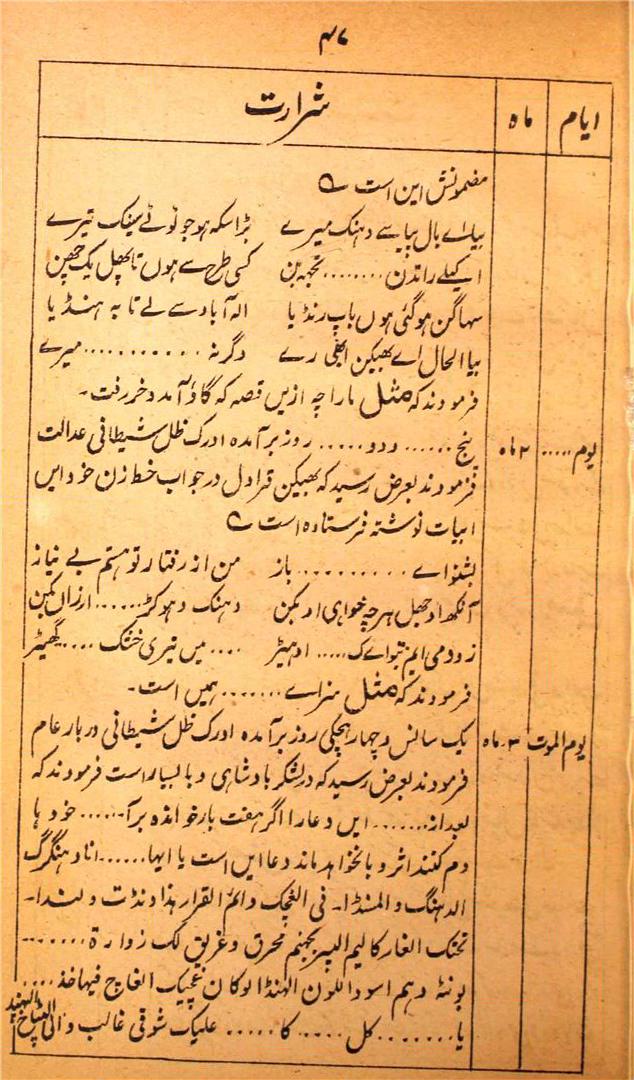 ۴۷
ایام ماہ شرارت
مضمونش این است ؎
بیا اے بال پیا سے دہنک میرے بڑا سکہ ہو جو ٹوٹے سینک تیرے
اکیلے راندن ........ تجہ بن کسی طرح سے ہوں تا پھل یک چھپن
سہاگن ہو گئی ہوں باپ رنڈیا الہ آباد سے لے تا بہ ہنڈیا
بیا الحال اے بھیکن ابھی رے دگر نہ ............ میرے
فرمودند کہ مثل مارا چہ ازیں قصہ کہ گاؤ آمد و خر رفت۔
یوم ..... ۲ ماہ پنج ...... و دو ..... روز بر آمدہ اورک ظل شیطانی عدالت
فرمودند بعرض رسید کہ بھیکن قراول در جواب خط زن خود ایں
ابیات نوشتہ فرستادہ است ؎
بشنو اے .......... باز من از رفتار تو ہستم بے نیاز
آنکھ اوجھل ہر چہ خواہی او بکن دہنک دہوکڑ ...... ارزاں بکن
زود می ایم تو اے ک ..... اوہیڑ .... میں تیری خشک .... گھیڑ
فرمودند کہ مثل سزاے ....... ہمیں است۔
یوم الموت ۳۔ ماہ یک سانس و چہار ہچکی روز بر آمدہ اورک ظل شیطانی دربار عام
فرمودند بعرض رسید کہ در لشکر بادشاہی وبا بسیار است فرمودند کہ
بعد از ....... ایں دعا را اگر ہفت بار خواندہ بر آ ...... خود ہا
دم کنند اثر وبا نخواہد ماند دعا ایں است یا ایہا ...... انا دہنگرگ
الدہنگ والمنڈا۔ فی الغچک والم القرار ہذا ونڈت ولنڈا۔
تحتک الغار کالیم البیر بجہنم محرق وغریق لک زوارۃ .......
بونٹہ وہم اسود اللون الہنڈا لوکان غچیک الغاچ فیہا خذ ....
یا ........ کل .... کا ..... علیک شوقی غالب والی